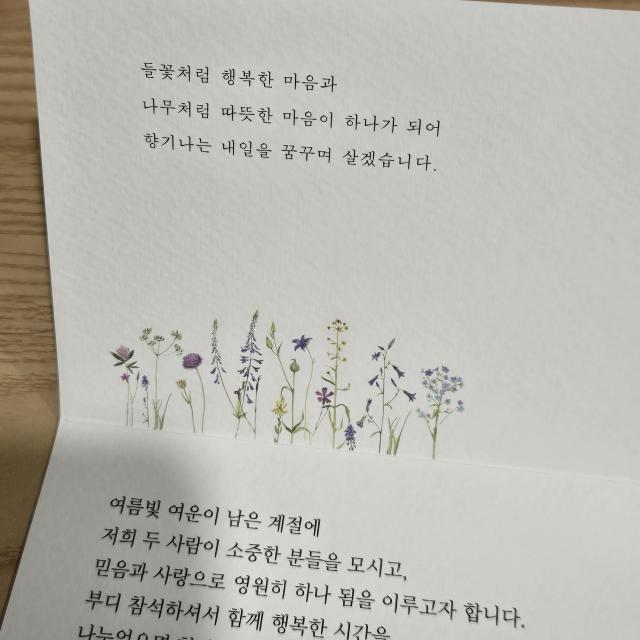 들꽃처럼 행복한 마음과
나무처럼 따뜻한 마음이 하나가 되어
향기나는 내일을 꿈꾸며 살겠습니다.
여름빛 여운이 남은 계절에
저희 두 사람이 소중한 분들을 모시고,
믿음과 사랑으로 영원히 하나 됨을 이루고자 합니다.
부디 참석하셔서 함께 행복한 시간을